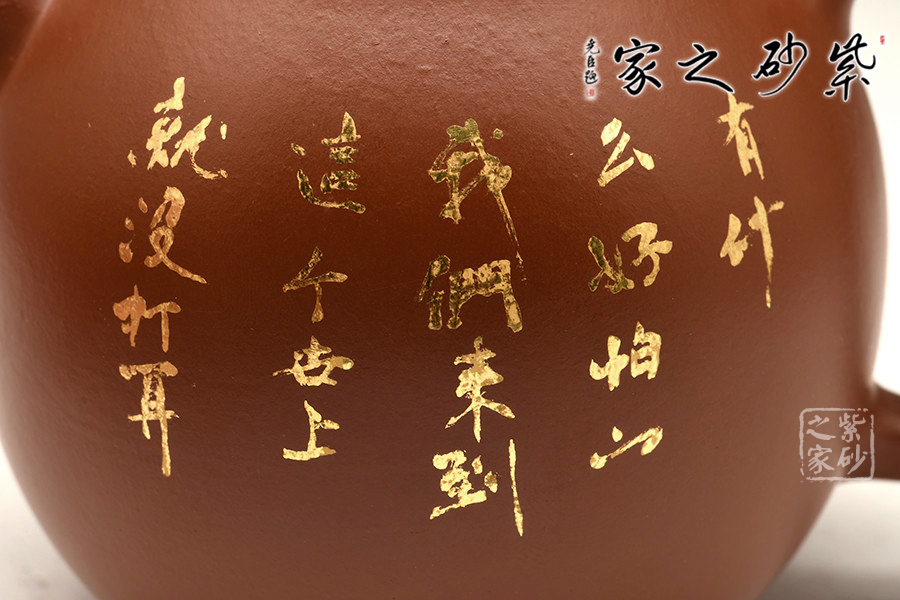 紫砂之家
有什
么好怕的
我們来到
這个世上
就没打算
紫砂之家